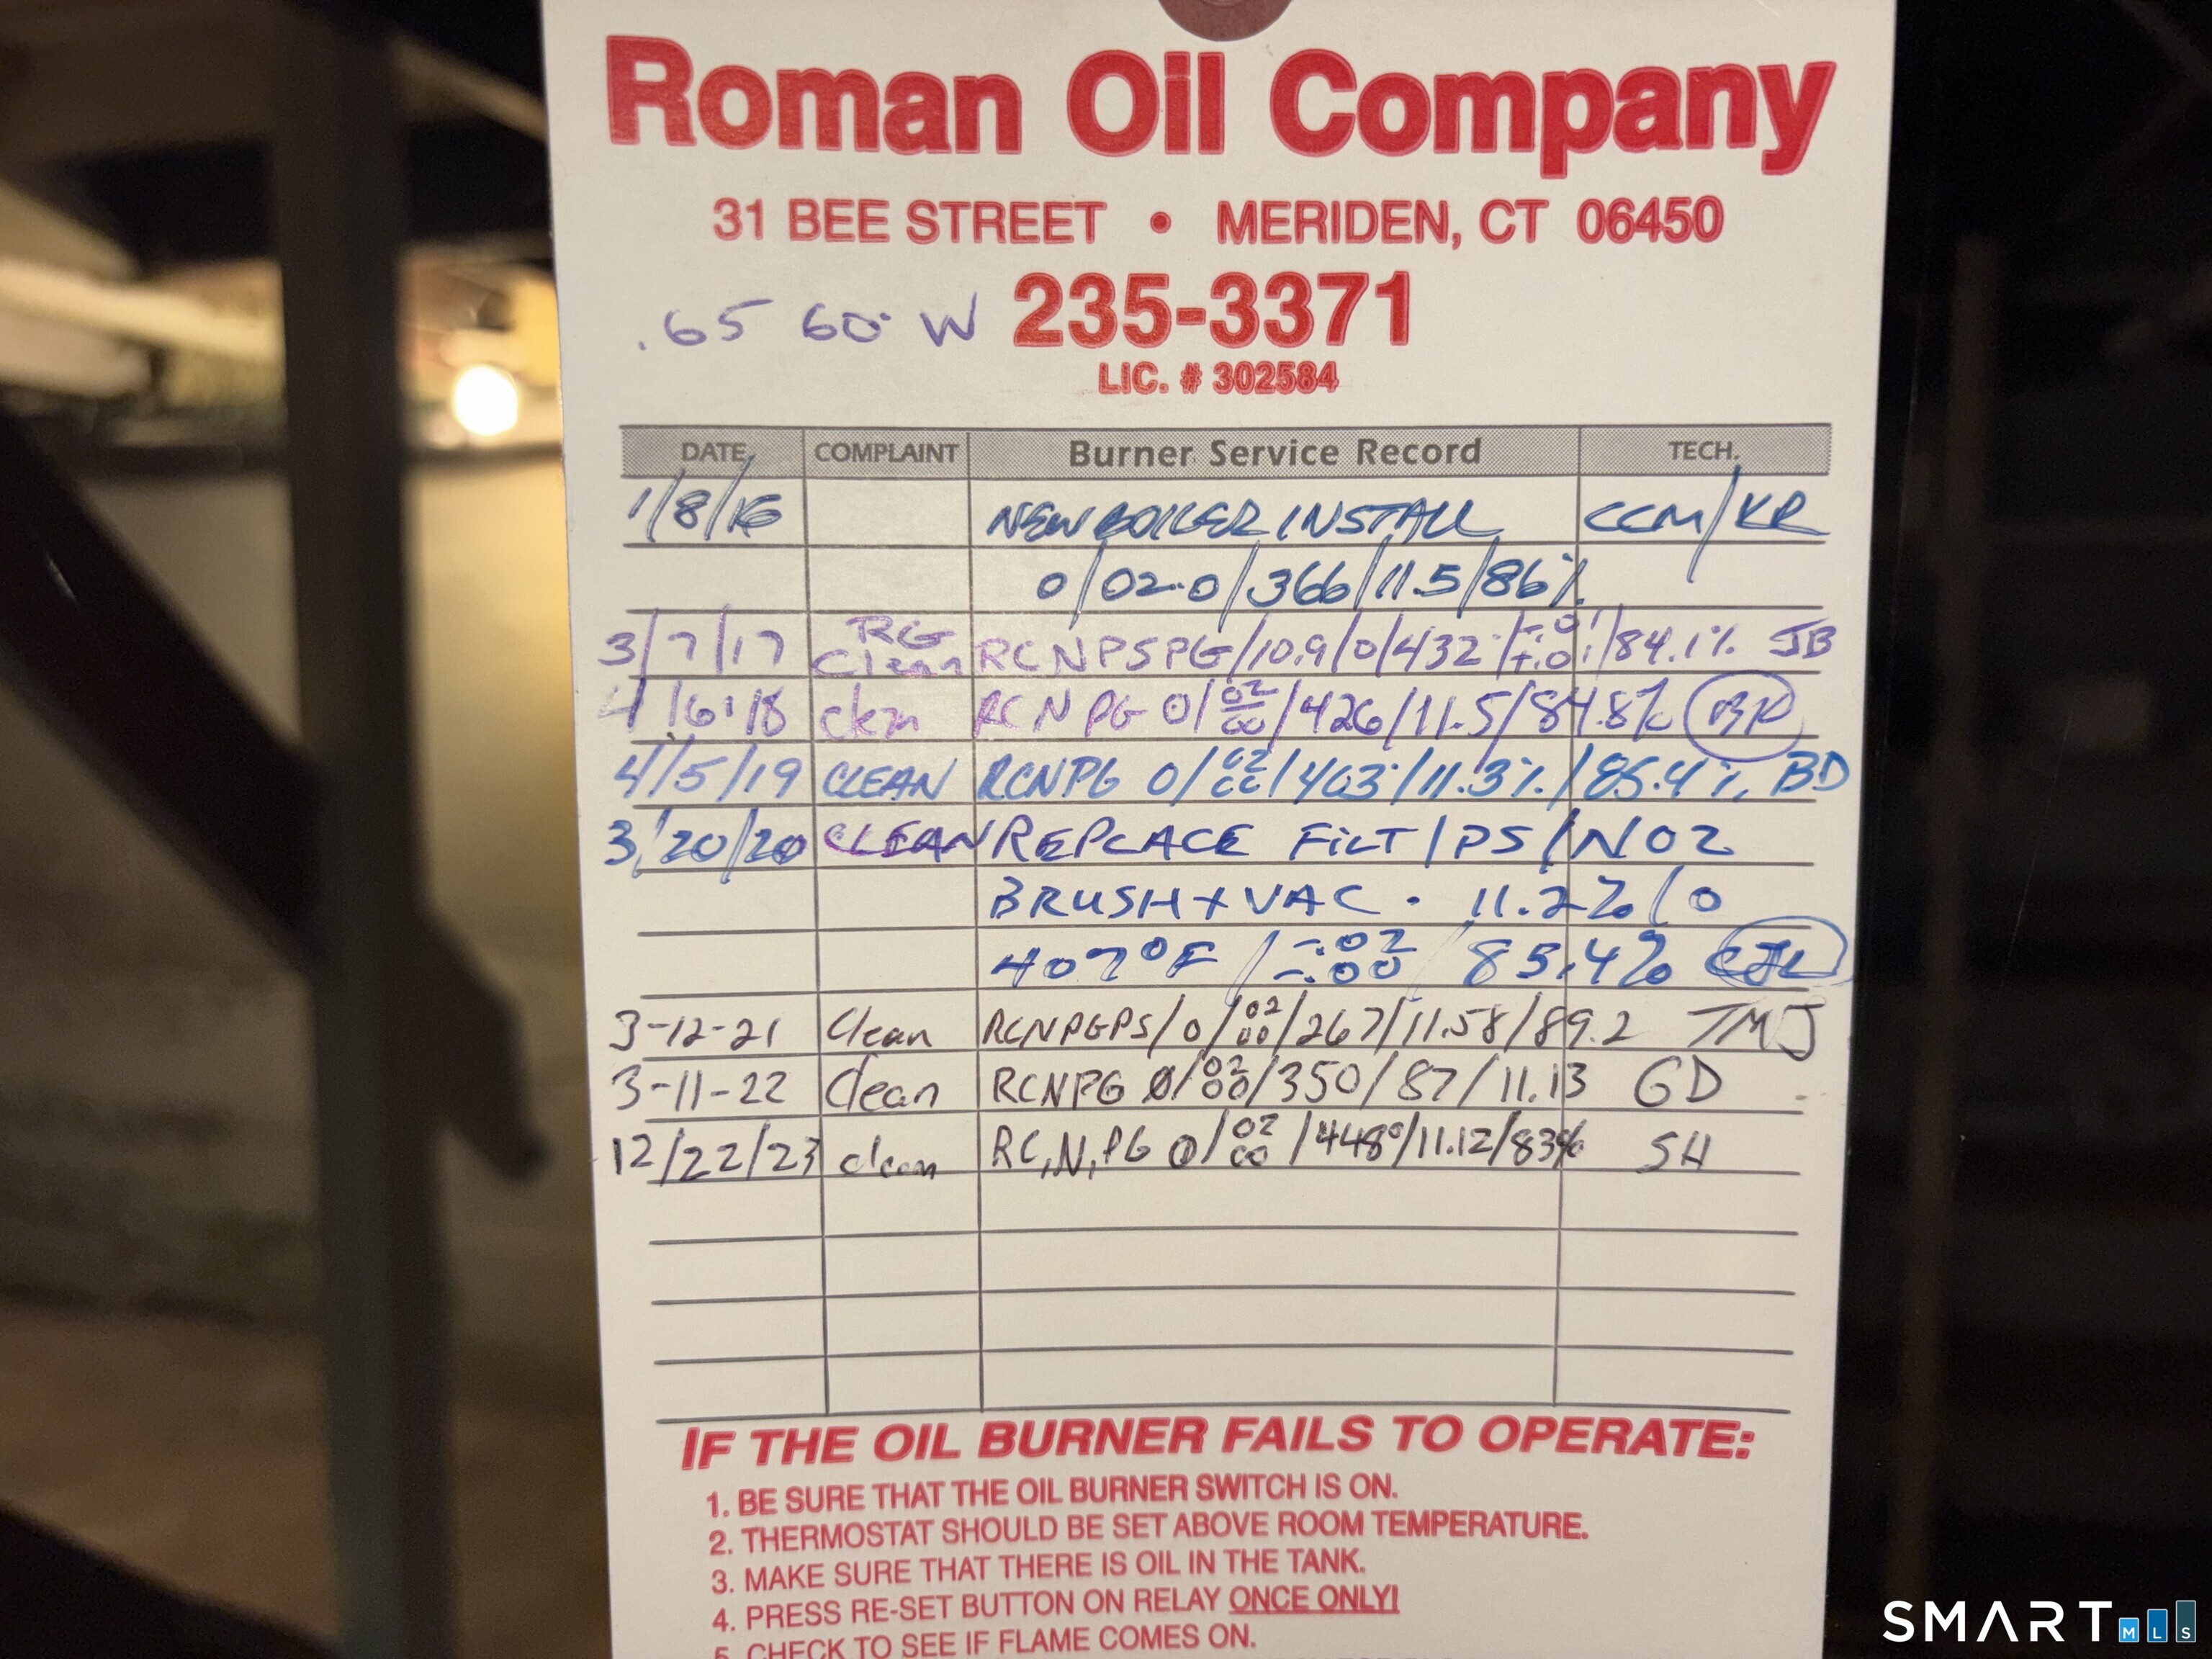 Roman Oil Company
31 BEE STREET • MERIDEN, CT 06450
.65 60° W 235-3371
LIC. # 302584
DATE COMPLAINT Burner Service Record TECH.
1/8/16 NEW BOILER INSTALL CCM/KR
0/02.0/366/11.5/86%
3/7/17 RG Clean RCNPSPG/10.9/0/432°/-.01/+.01/84.1% JB
4/6/18 RCNPG 0/02/00/426/11.5/84.8%
4/5/19 CLEAN RCNPG 0/02/00/403°/11.3%/85.4% BD
3/20/20 CLEAN REPLACE FILT/PS/NOZ
BRUSH + VAC. 11.2%/0
407°F/-.02/-.00/85.4% CJL
3-12-21 Clean RCNPGPS/0/02/00/267/11.58/89.2 TMJ
3-11-22 Clean RCNPG Ø/02/00/350/87/11.13 GD
12/22/23 clean RC,N,PG 0/02/00/448°/11.12/83% SH
IF THE OIL BURNER FAILS TO OPERATE:
1. BE SURE THAT THE OIL BURNER SWITCH IS ON.
2. THERMOSTAT SHOULD BE SET ABOVE ROOM TEMPERATURE.
3. MAKE SURE THAT THERE IS OIL IN THE TANK.
4. PRESS RE-SET BUTTON ON RELAY ONCE ONLY!
5. CHECK TO SEE IF FLAME COMES ON.
SMART MLS